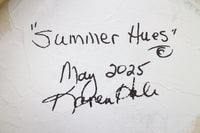 "Summer Hues"
May 2025
Karen Hale